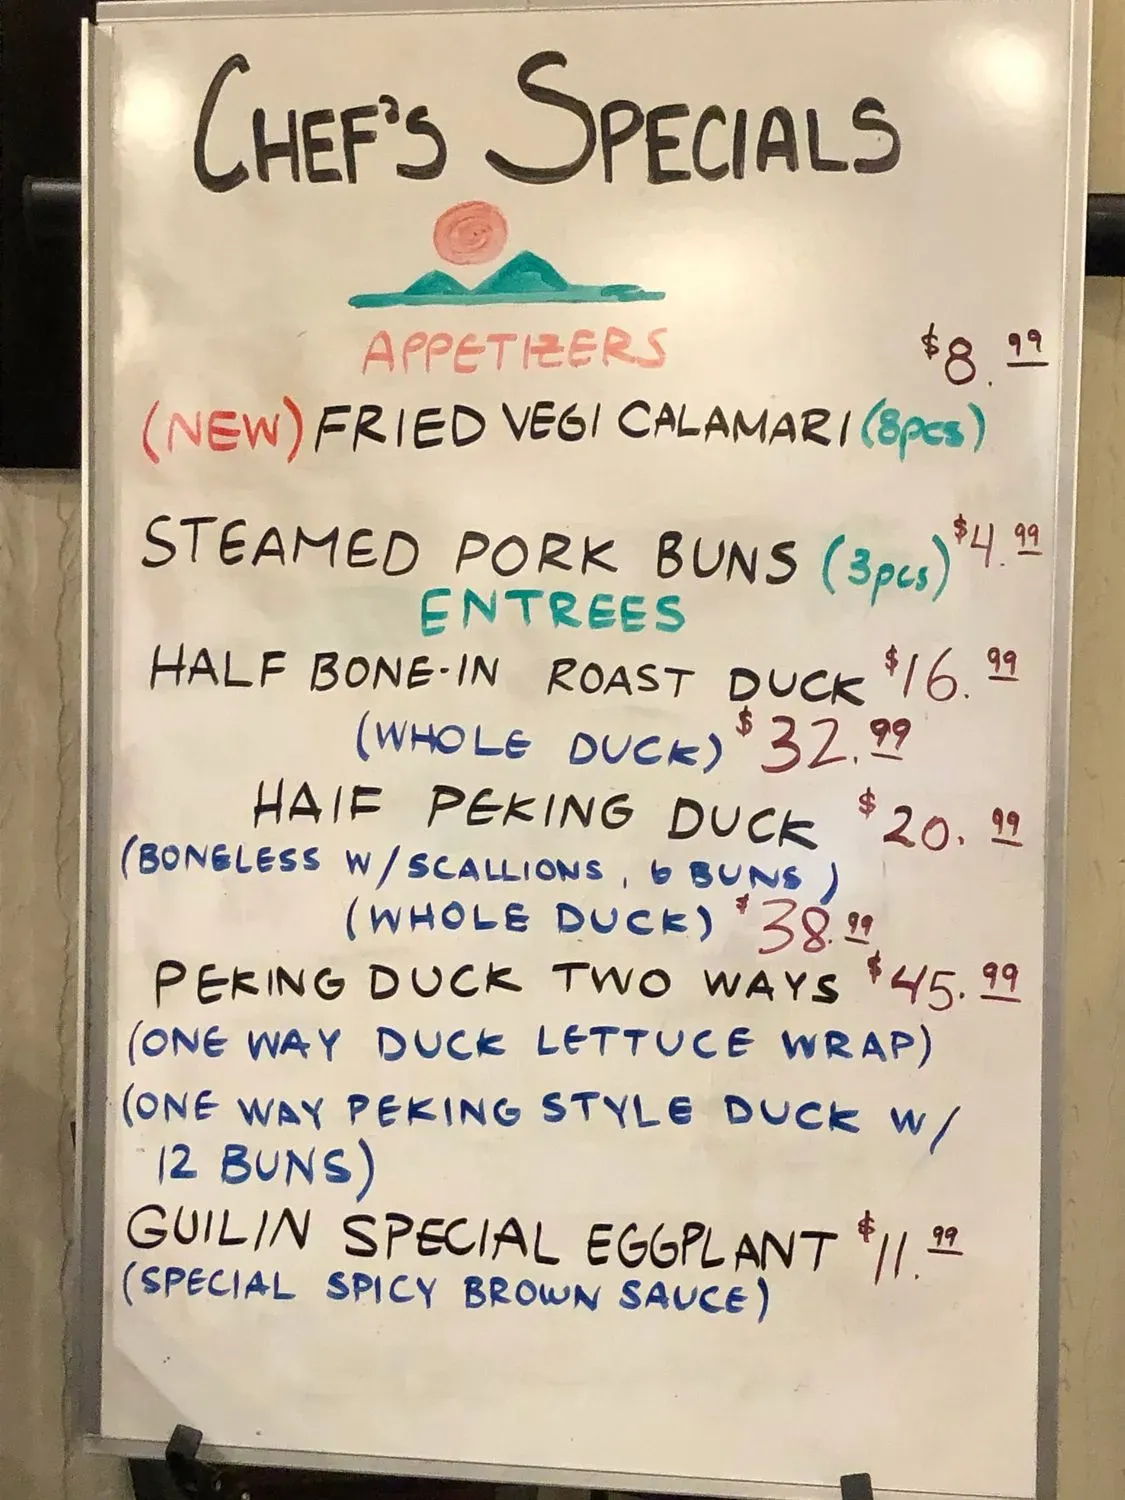 CHEF'S SPECIALS
APPETIZERS $8.99
(NEW) FRIED VEGI CALAMARI (8pcs)
STEAMED PORK BUNS (3pcs) $4.99
ENTREES
HALF BONE-IN ROAST DUCK $16.99
(WHOLE DUCK) $32.99
HAIF PEKING DUCK $20.99
(BONELESS W/SCALLIONS, 6 BUNS)
(WHOLE DUCK) $38.99
PEKING DUCK TWO WAYS $45.99
(ONE WAY DUCK LETTUCE WRAP)
(ONE WAY PEKING STYLE DUCK W/
12 BUNS)
GUILIN SPECIAL EGGPLANT $11.99
(SPECIAL SPICY BROWN SAUCE)